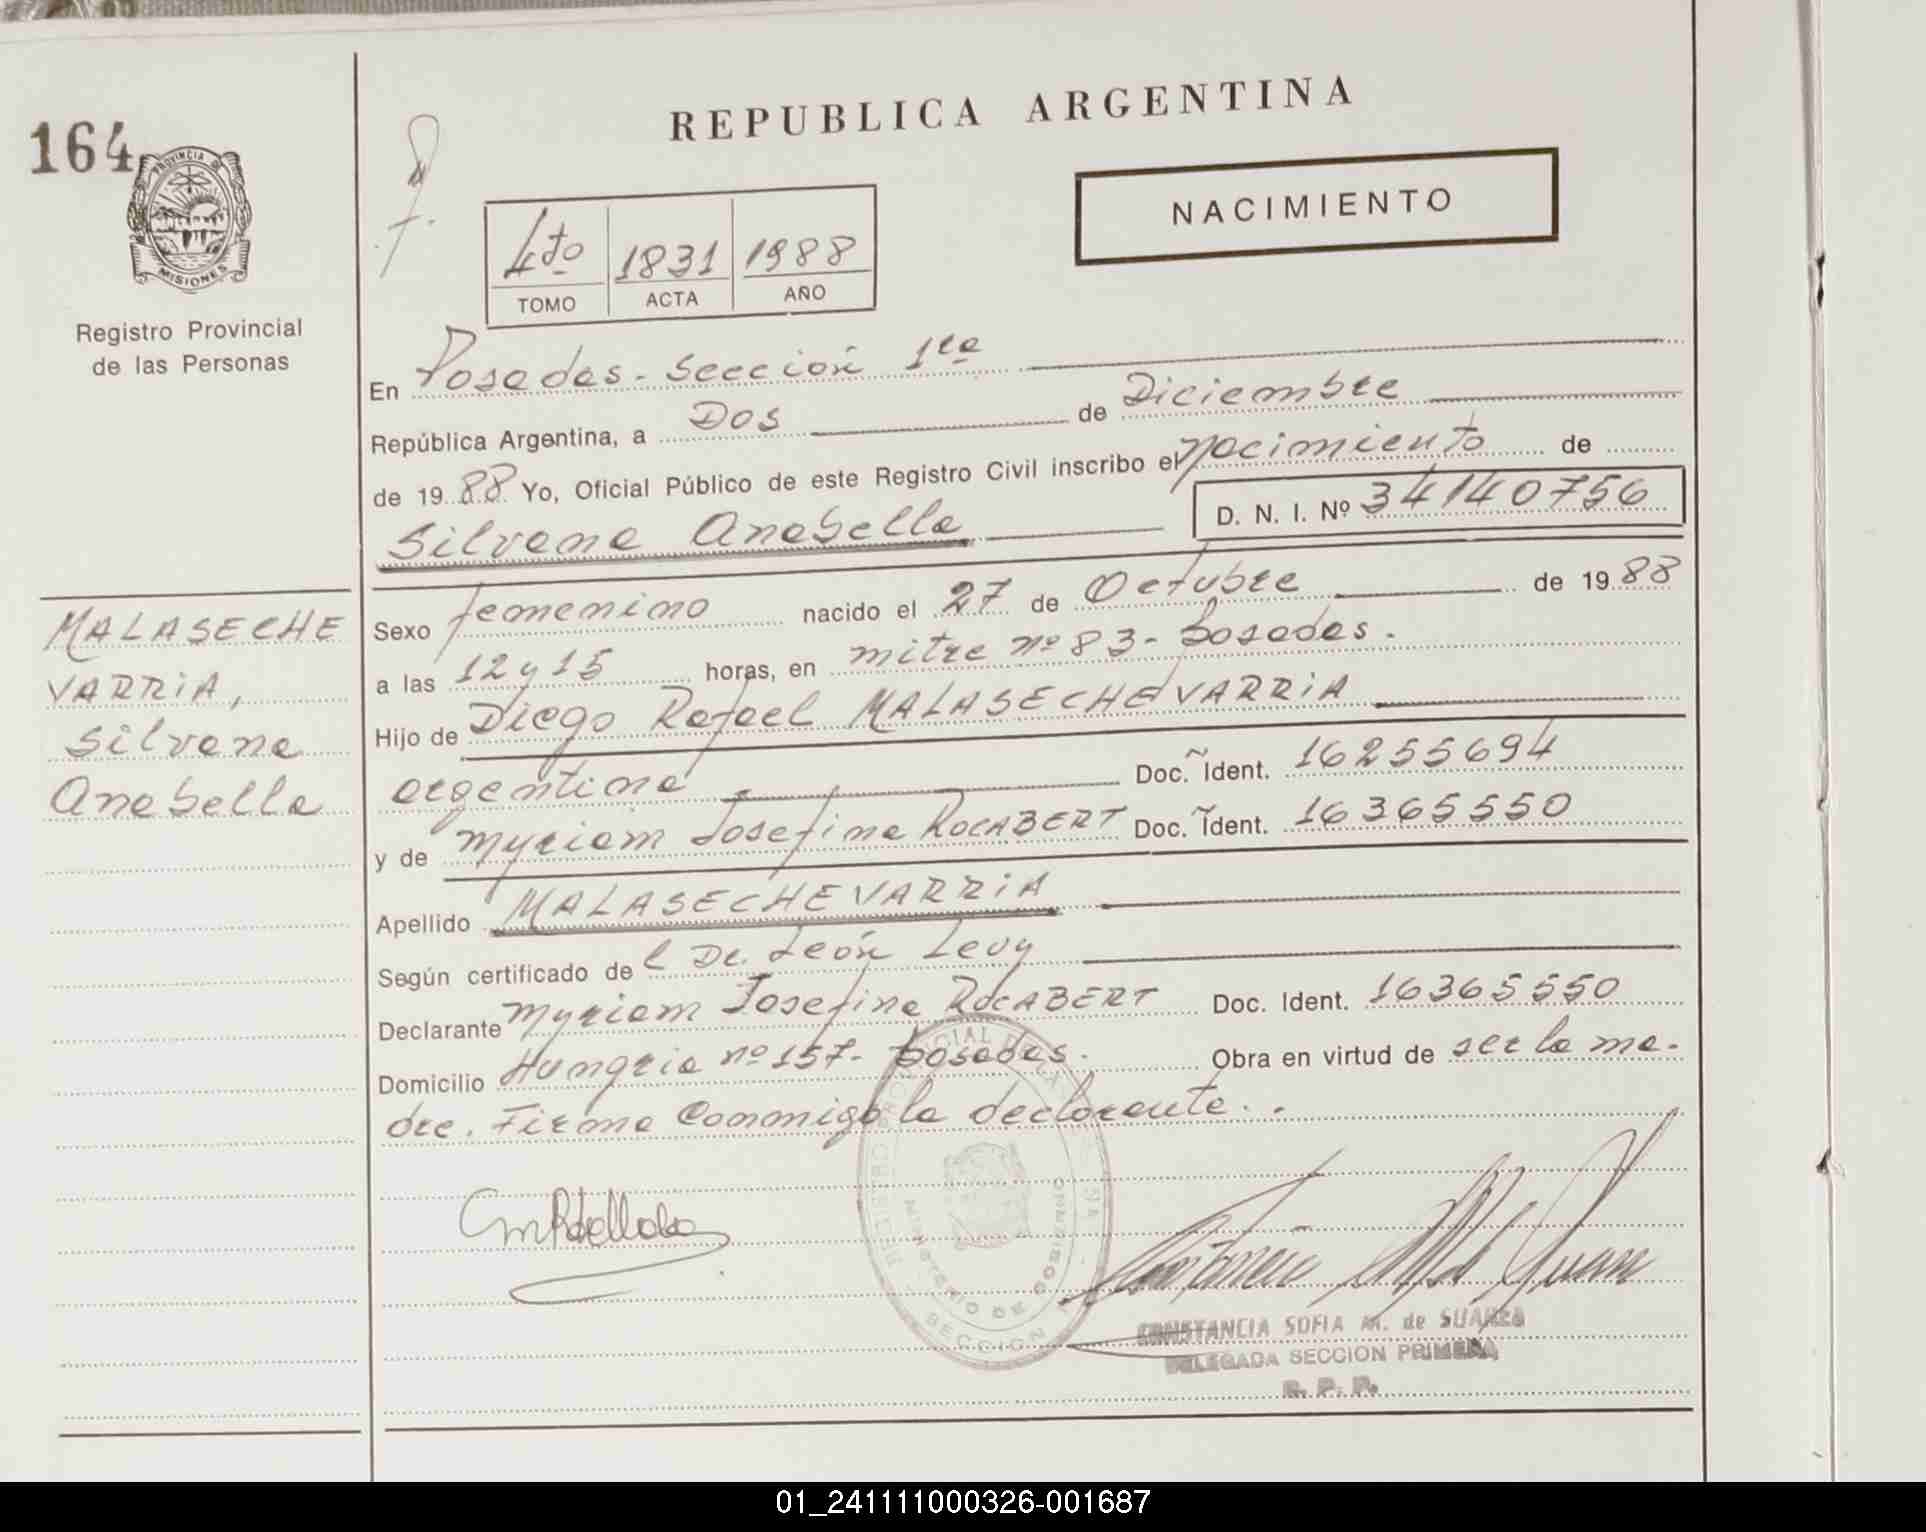 164
PROVINCIA DE
MISIONES
Registro Provincial
de las Personas
MALASECHE
VARRiA,
Silvana
Anabella
REPUBLICA ARGENTINA
NACIMIENTO
4to 1831 1988
TOMO ACTA AÑO
En Posadas - Sección 1ra
República Argentina, a Dos de Diciembre
de 1988 Yo, Oficial Público de este Registro Civil inscribo el nacimiento de
Silvana Anabella D. N. I. Nº 34140756
Sexo femenino nacido el 27 de Octubre de 1988
a las 12 y 15 horas, en mitre nº 83 - Posadas.
Hijo de Diego Rafael MALASECHEVARRiA
argentina Doc. Ident. 16255694
y de Myriam Josefina ROCABERT Doc. Ident. 16365550
Apellido MALASECHEVARRiA
Según certificado del Dr. León Levy
Declarante Myriam Josefina ROCABERT Doc. Ident. 16365550
Domicilio Hungria nº 157 - Posadas. Obra en virtud de ser la ma-
dre. Firma Conmigo la declarante..
REGISTRO PROVINCIAL DE LAS
MINISTERIO DE GOBIERNO
SECCION
CONSTANCIA SOFIA M. de SUAREZ
DELEGADA SECCION PRIMERA
R. P. P.
01_241111000326-001687